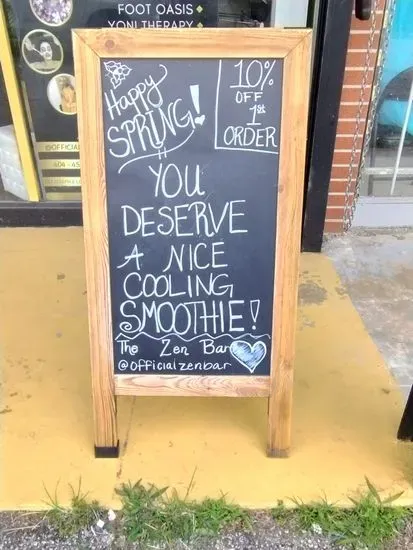 FOOT OASIS
YONI THERAPY
@OFFICIAL
404-45
Happy
SPRING!
10%
OFF
1st
ORDER
YOU
DESERVE
A NICE
COOLING
SMOOTHIE!
The Zen Bar
@officialzenbar